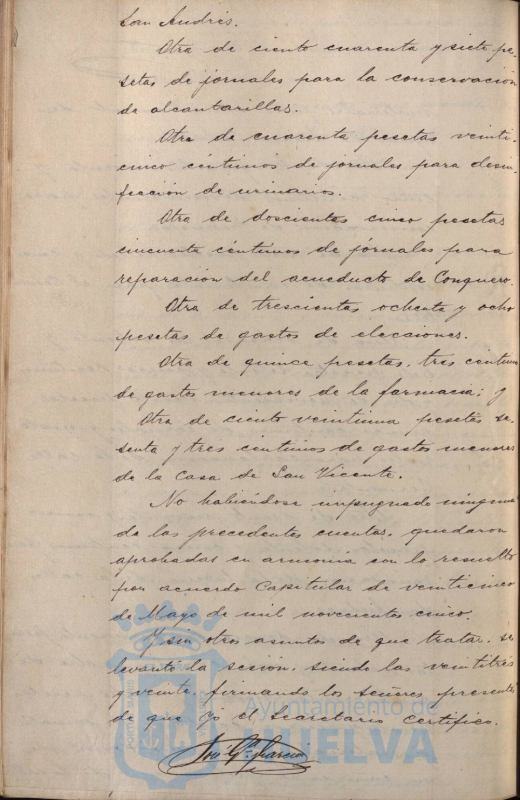 San Andrés.
Otra de ciento cuarenta y siete pe-
setas de jornales para la conservación
de alcantarillas.
Otra de cuarenta pesetas veinti-
cinco céntimos de jornales para desin-
fección de urinarios.
Otra de doscientas cinco pesetas
cincuenta céntimos de jornales para
reparación del acueducto de Conquero.
Otra de trescientas ochenta y ocho
pesetas de gastos de elecciones.
Otra de quince pesetas tres céntimos
de gastos menores de la farmacia; y
Otra de ciento veintiuna pesetas se-
senta y tres céntimos de gastos menores
de la Casa de San Vicente.
No habiéndose impugnado ninguna
de las precedentes cuentas, quedaron
aprobadas en armonía con lo resuelto
por acuerdo Capitular de veinticinco
de Mayo de mil novecientos cinco.
Y sin otros asuntos de que tratar, se
levantó la sesión, siendo las veintitrés
y veinte, firmando los Señores presentes
de que yo el Secretario certifico.
García
Ayuntamiento de
HUELVA